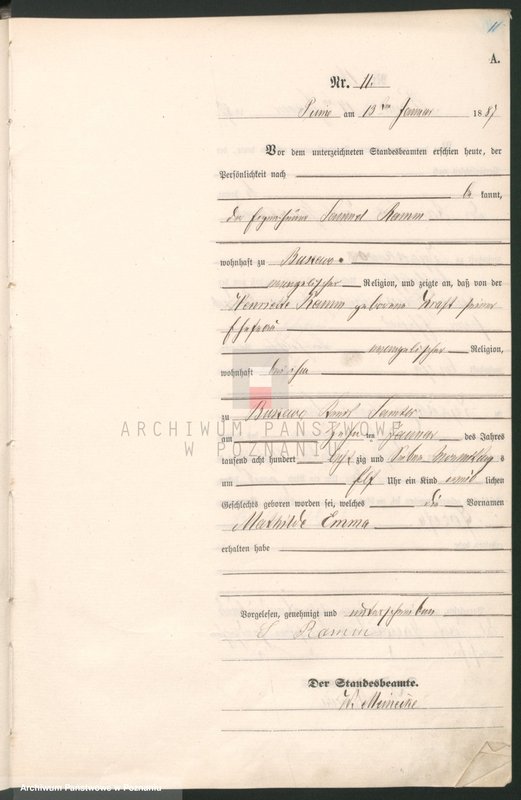 11
A.
Nr. 11.
am 13ten Januar 1887
Vor dem unterzeichneten Standesbeamten erschien heute, der
Persönlichkeit nach
be kannt,
der Eigenthümer Ramm
wohnhaft zu Buszewo
evangelischer Religion, und zeigte an, daß von der
Henriette Ramm geborene Kraft seiner
Ehefrau
evangelischer Religion,
wohnhaft bei ihm
zu Buszewo Samter
am zehn ten Januar des Jahres
tausend acht hundert acht zig und sieben Vormittags
um elf Uhr ein Kind weib lichen
Geschlechts geboren worden sei, welches die Vornamen
Mathilde Emma
erhalten habe
Vorgelesen, genehmigt und unterschrieben
S Ramm
Der Standesbeamte.
W. Meinecke
ARCHIWUM PAŃSTWOWE
W POZNANIU
Archiwum Państwowe w Poznaniu